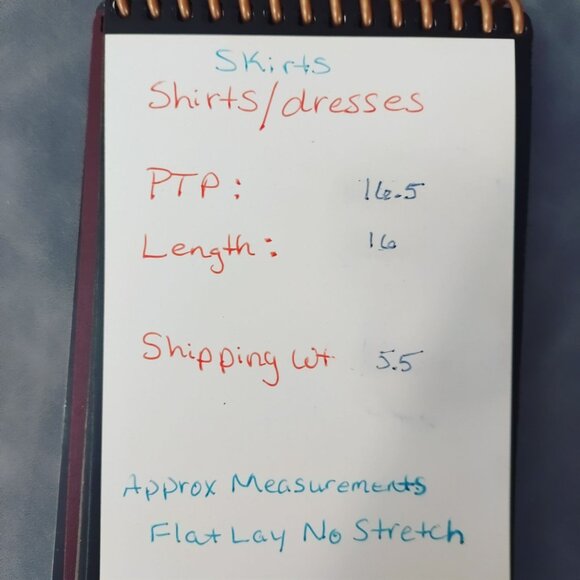 Skirts
Shirts/dresses
PTP: 16.5
Length: 16
Shipping Wt 5.5
Approx Measurements
Flat Lay No Stretch